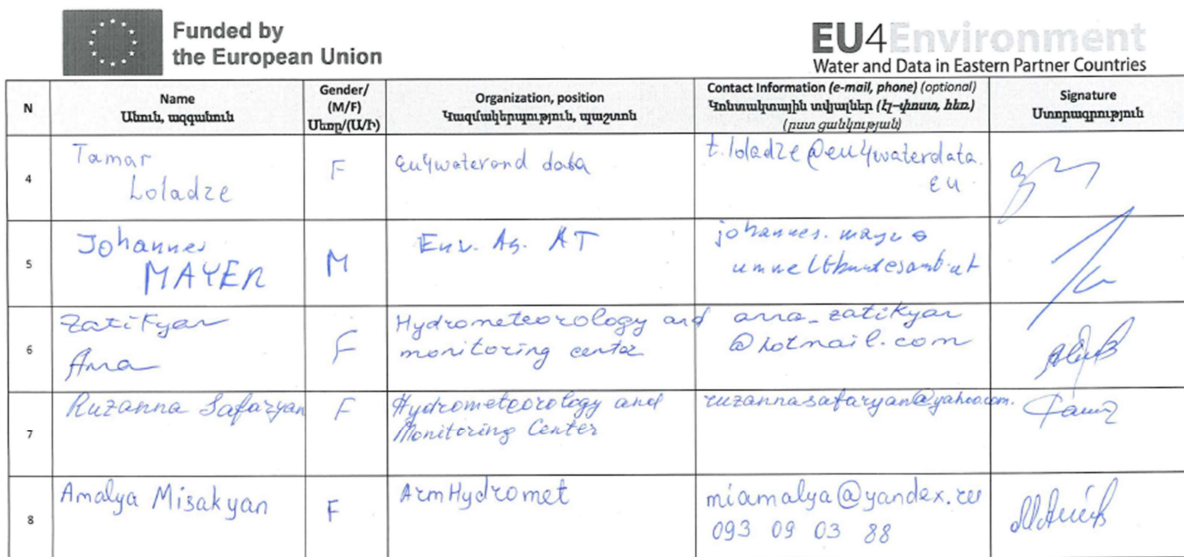 Funded by
the European Union
EU4Environment
Water and Data in Eastern Partner Countries
N
Name
Անուն, ազգանուն
Gender/
(M/F)
Սեռը/(Ա/Ի)
Organization, position
Կազմակերպություն, պաշտոն
Contact Information (e-mail, phone) (optional)
Կոնտակտային տվյալներ (էլ-փոստ, հեռ.)
(ըստ ցանկության)
Signature
Ստորագրություն
4
Tamar
Loladze
F
eu4waterand data
t.loladze@eu4waterdata.
eu
5
Johannes
MAYER
M
Env. Ag. AT
johannes.
umweltbundesamt.at
6
Zatikyan
Anna
F
Hydrometeorology and
monitoring center
anna_zatikyan
@hotmail.com
7
Ruzanna Safaryan
F
Hydrometeorology and
Monitoring Center
ruzannasafaryan@yahoo.com.
8
Amalya Misakyan
F
ArmHydromet
miamalya@yandex.ru
093 09 03 88